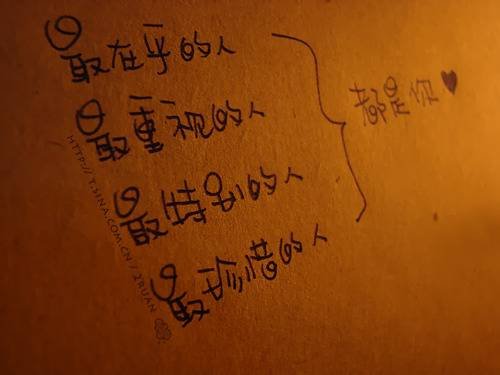 最在乎的人
最重视的人
最特别的人
最珍惜的人
都是你♥
HTTP://T.SINA.COM.CN/2RUAN